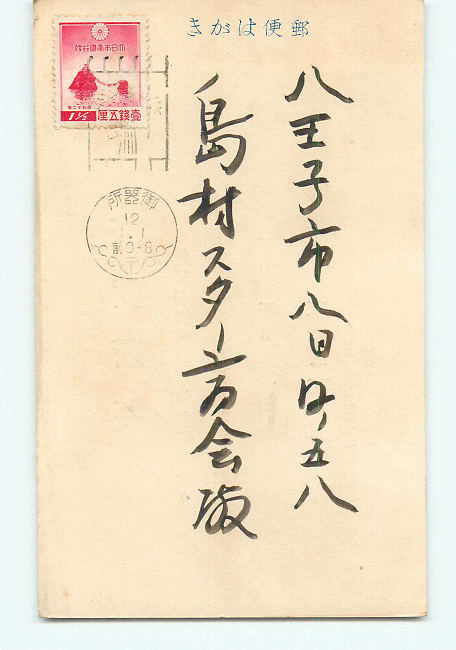 郵便はがき
大日本帝國郵便
昭和十二年
壹錢五厘
1½
御器所
12
1.1
前0-8
八王子市八日町五八
島村スター商会殿